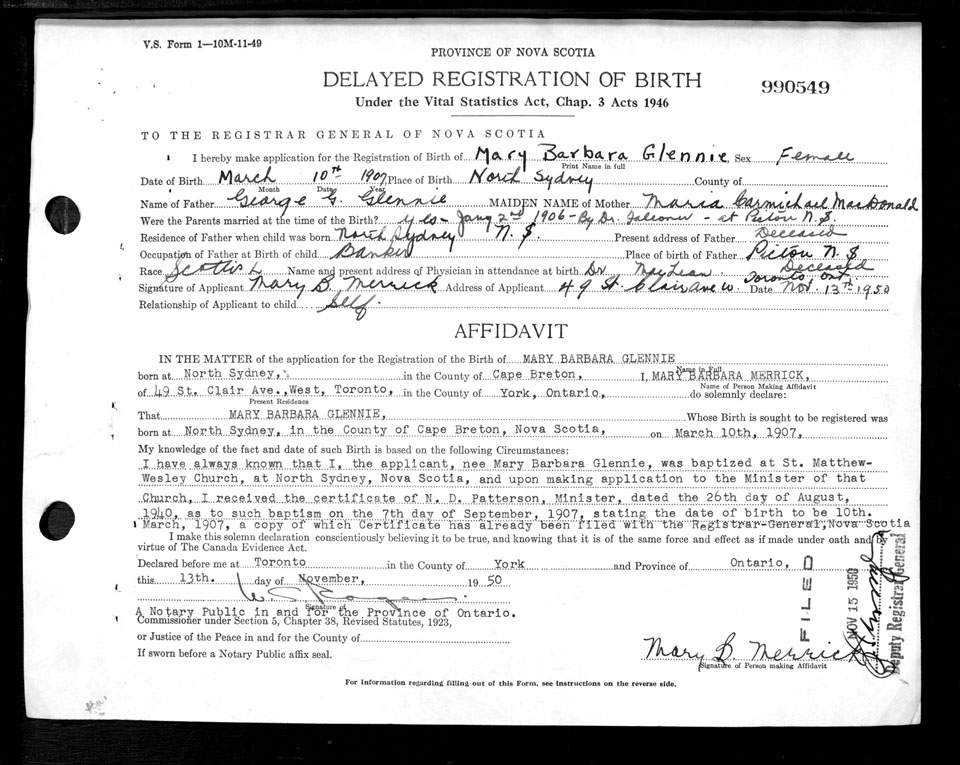 V.S. Form 1—10M-11-49
PROVINCE OF NOVA SCOTIA
DELAYED REGISTRATION OF BIRTH
990549
Under the Vital Statistics Act, Chap. 3 Acts 1946
TO THE REGISTRAR GENERAL OF NOVA SCOTIA
I hereby make application for the Registration of Birth of Mary Barbara Glennie, Sex Female
Print Name in full
Date of Birth March 10th 1907, Place of Birth North Sydney County of
Month Date Year
Name of Father George G. Glennie MAIDEN NAME of Mother Maria Carmichael MacDonald
Were the Parents married at the time of the Birth? yes - Jany 2nd 1906 - By Dr. Falconer - at Pictou N.S.
Residence of Father when child was born North Sydney N.S. Present address of Father Deceased
Occupation of Father at Birth of child Banker Place of birth of Father Pictou N.S
Race Scottish Name and present address of Physician in attendance at birth. Dr. Deceased
Signature of Applicant Mary B. Merrick Address of Applicant 49 St. Clair Ave W. Toronto, Ont Date Nov. 13th 1950
Relationship of Applicant to child Self
AFFIDAVIT
IN THE MATTER of the application for the Registration of the Birth of MARY BARBARA GLENNIE
Name in Full
born at North Sydney, in the County of Cape Breton, I, MARY BARBARA MERRICK,
Name of Person Making Affidavit
of 49 St. Clair Ave., West, Toronto, in the County of York, Ontario, do solemnly declare:
Present Residence
That MARY BARBARA GLENNIE, Whose Birth is sought to be registered was
born at North Sydney, in the County of Cape Breton, Nova Scotia, on March 10th, 1907,
My knowledge of the fact and date of such Birth is based on the following Circumstances:
I have always known that I, the applicant, nee Mary Barbara Glennie, was baptized at St. Matthew-
Wesley Church, at North Sydney, Nova Scotia, and upon making application to the Minister of that
Church, I received the certificate of N. D. Patterson, Minister, dated the 26th day of August,
1940, as to such baptism on the 7th day of September, 1907, stating the date of birth to be 10th.
March, 1907, a copy of which Certificate has already been filed with the Registrar-General, Nova Scotia
I make this solemn declaration conscientiously believing it to be true, and knowing that it is of the same force and effect as if made under oath and by
virtue of The Canada Evidence Act.
Declared before me at Toronto in the County of York and Province of Ontario,
this 13th. day of November, 19 50
Signature of
A Notary Public in and for the Province of Ontario.
Commissioner under Section 5, Chapter 38, Revised Statutes, 1923,
or Justice of the Peace in and for the County of
If sworn before a Notary Public affix seal.
Mary B. Merrick
Signature of Person making Affidavit
FILED
NOV 15 1950
Deputy Registrar General
For Information regarding filling out of this Form, see instructions on the reverse side.